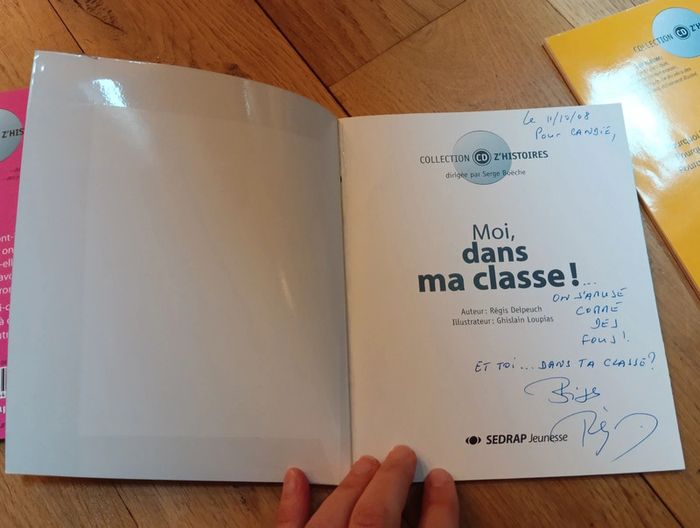 Le 11/10/08
Pour CANDIE,
COLLECTION CD Z'HISTOIRES
dirigée par Serge Boëche
Moi,
dans
ma classe !...
ON S'AMUSE
COMME
DES
FOUS !
Auteur : Régis Delpeuch
Illustrateur : Ghislain Loupias
ET TOI... DANS TA CLASSE ?
Bises
SEDRAP Jeunesse
Z'HISTOIRES
COLLECTION CD Z'HISTOIRES